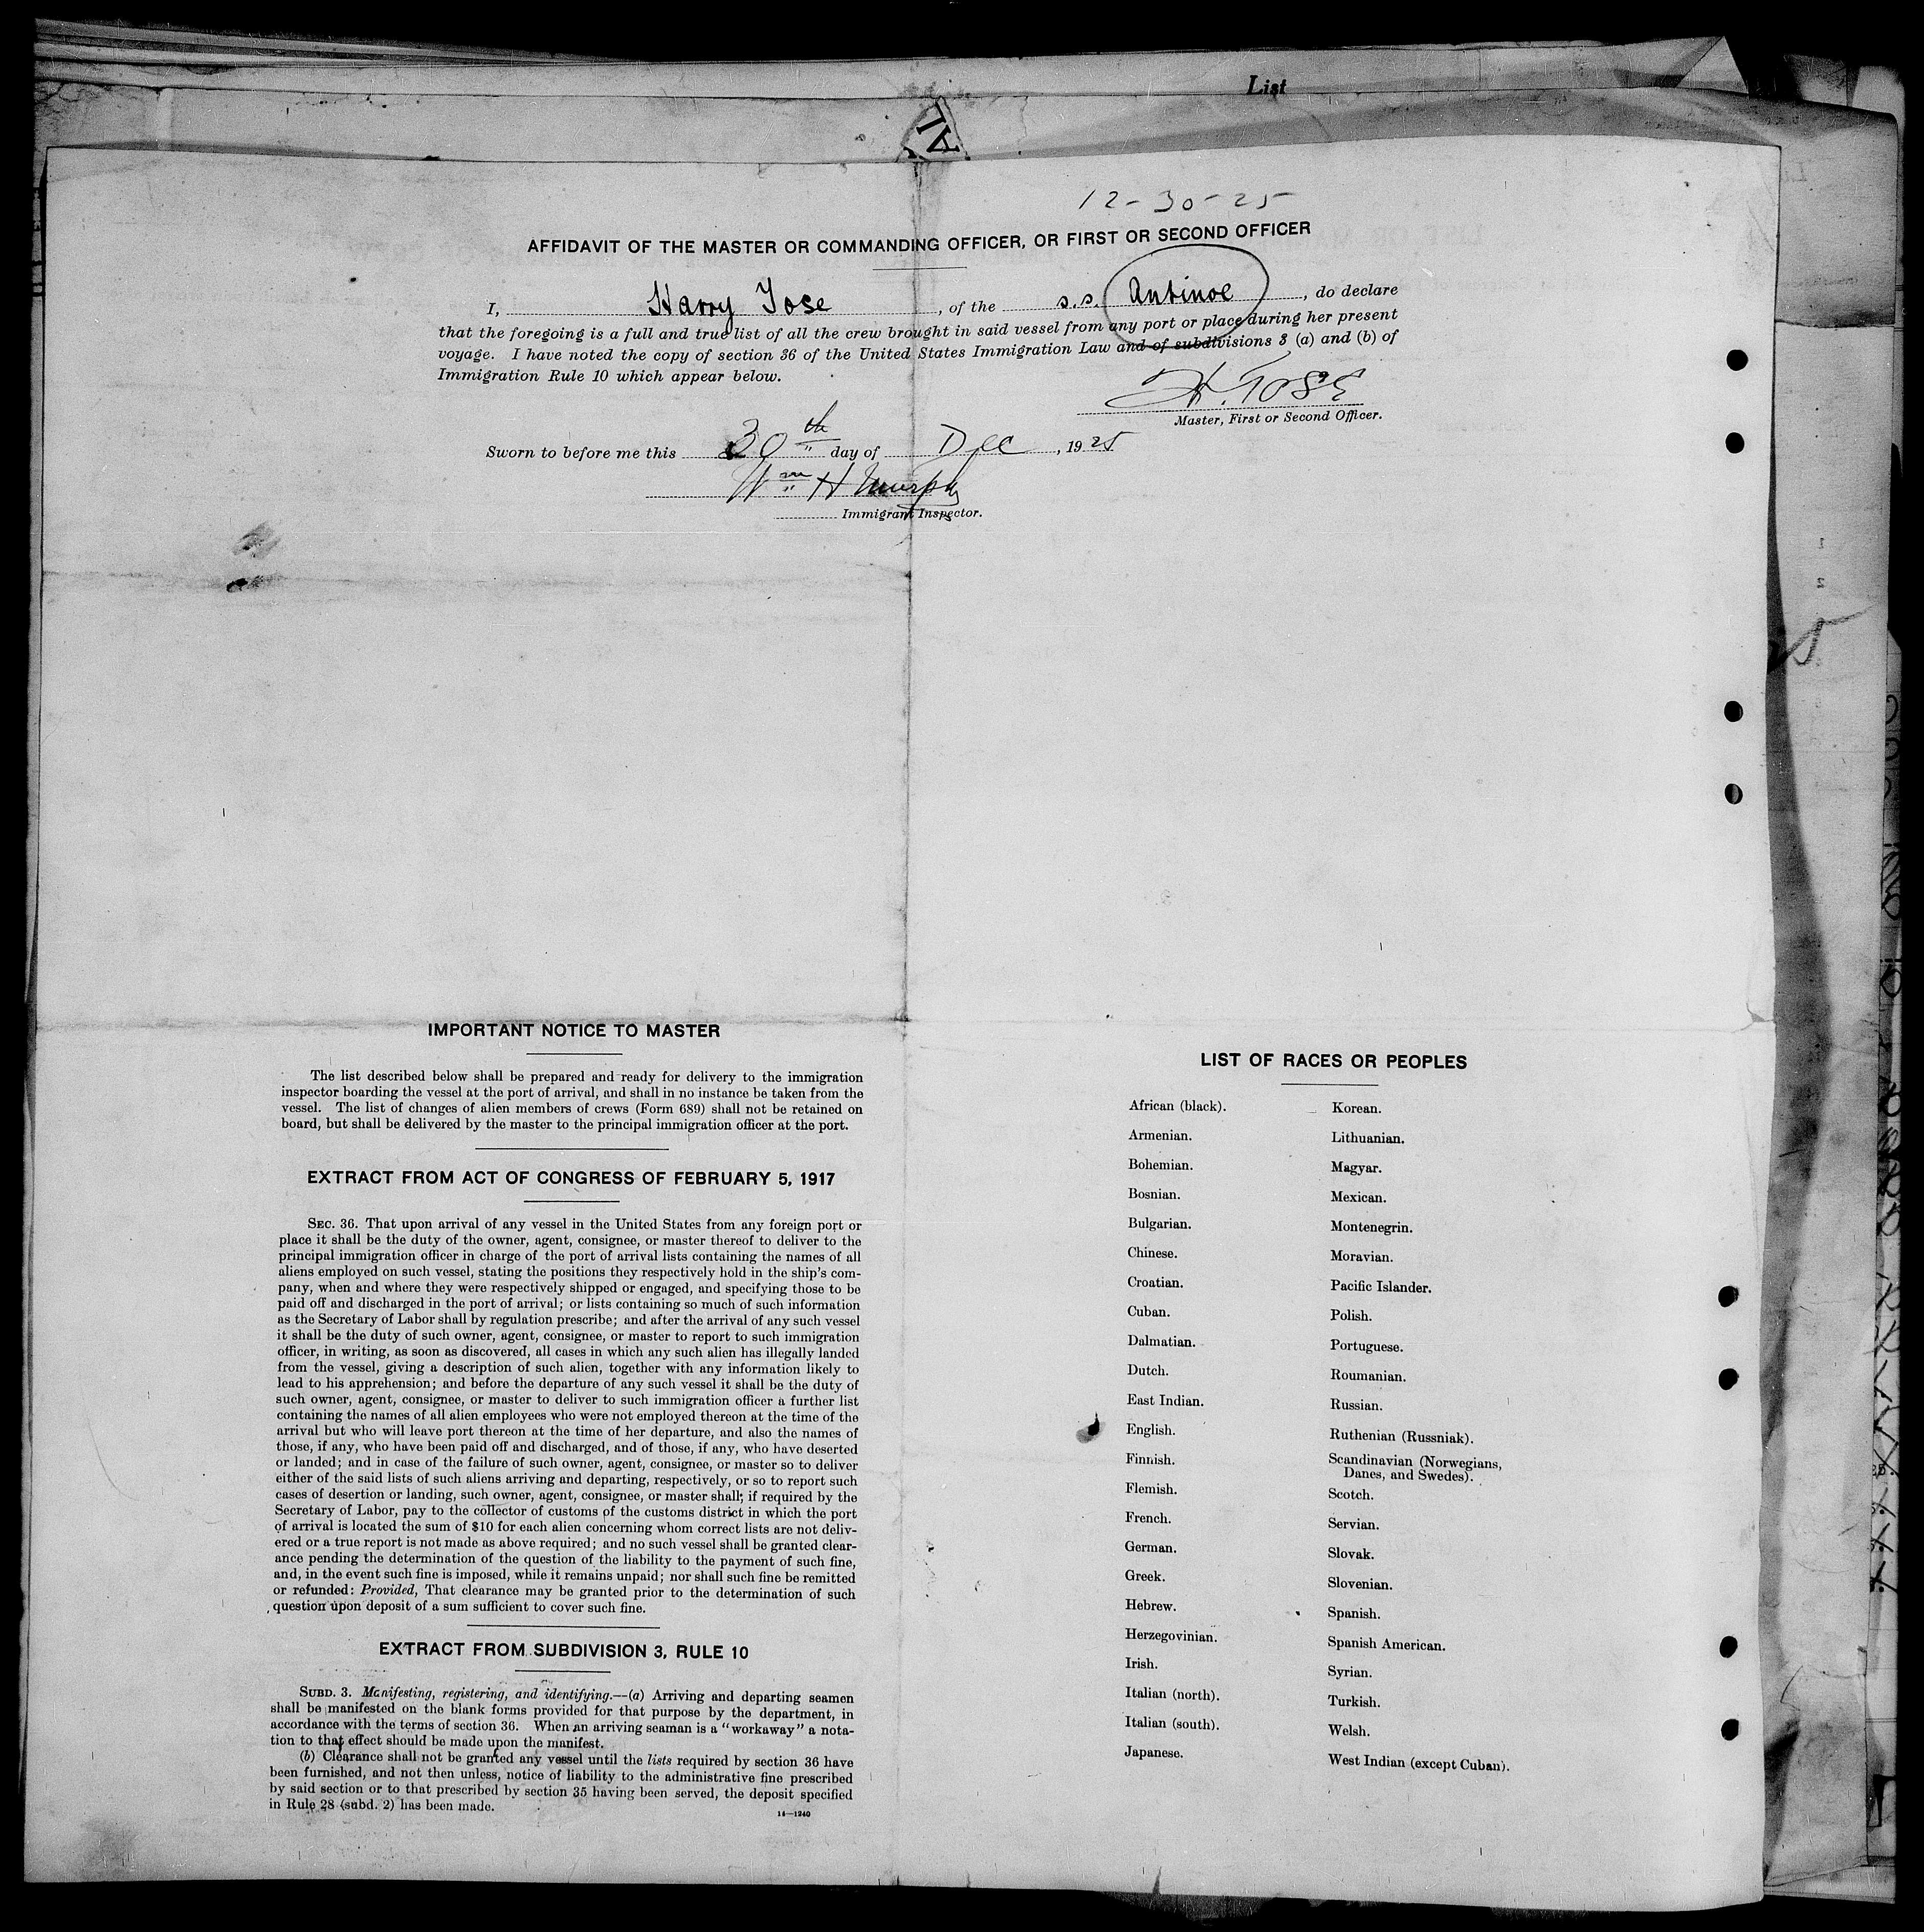 List
12-30-25
AFFIDAVIT OF THE MASTER OR COMMANDING OFFICER, OR FIRST OR SECOND OFFICER
I, Harry Tose, of the s.s. Antinoe, do declare
that the foregoing is a full and true list of all the crew brought in said vessel from any port or place during her present
voyage. I have noted the copy of section 36 of the United States Immigration Law and of subdivisions 3 (a) and (b) of
Immigration Rule 10 which appear below.
H. TOSE
Master, First or Second Officer.
Sworn to before me this 30th day of Dec, 1925
Wm H Murphy
Immigrant Inspector.
IMPORTANT NOTICE TO MASTER
The list described below shall be prepared and ready for delivery to the immigration
inspector boarding the vessel at the port of arrival, and shall in no instance be taken from the
vessel. The list of changes of alien members of crews (Form 689) shall not be retained on
board, but shall be delivered by the master to the principal immigration officer at the port.
EXTRACT FROM ACT OF CONGRESS OF FEBRUARY 5, 1917
SEC. 36. That upon arrival of any vessel in the United States from any foreign port or
place it shall be the duty of the owner, agent, consignee, or master thereof to deliver to the
principal immigration officer in charge of the port of arrival lists containing the names of all
aliens employed on such vessel, stating the positions they respectively hold in the ship's com-
pany, when and where they were respectively shipped or engaged, and specifying those to be
paid off and discharged in the port of arrival; or lists containing so much of such information
as the Secretary of Labor shall by regulation prescribe; and after the arrival of any such vessel
it shall be the duty of such owner, agent, consignee, or master to report to such immigration
officer, in writing, as soon as discovered, all cases in which any such alien has illegally landed
from the vessel, giving a description of such alien, together with any information likely to
lead to his apprehension; and before the departure of any such vessel it shall be the duty of
such owner, agent, consignee, or master to deliver to such immigration officer a further list
containing the names of all alien employees who were not employed thereon at the time of the
arrival but who will leave port thereon at the time of her departure, and also the names of
those, if any, who have been paid off and discharged, and of those, if any, who have deserted
or landed; and in case of the failure of such owner, agent, consignee, or master so to deliver
either of the said lists of such aliens arriving and departing, respectively, or so to report such
cases of desertion or landing, such owner, agent, consignee, or master shall, if required by the
Secretary of Labor, pay to the collector of customs of the customs district in which the port
of arrival is located the sum of $10 for each alien concerning whom correct lists are not deliv-
ered or a true report is not made as above required; and no such vessel shall be granted clear-
ance pending the determination of the question of the liability to the payment of such fine,
and, in the event such fine is imposed, while it remains unpaid; nor shall such fine be remitted
or refunded: Provided, That clearance may be granted prior to the determination of such
question upon deposit of a sum sufficient to cover such fine.
EXTRACT FROM SUBDIVISION 3, RULE 10
SUBD. 3. Manifesting, registering, and identifying.—(a) Arriving and departing seamen
shall be manifested on the blank forms provided for that purpose by the department, in
accordance with the terms of section 36. When an arriving seaman is a "workaway" a nota-
tion to that effect should be made upon the manifest.
(b) Clearance shall not be granted any vessel until the lists required by section 36 have
been furnished, and not then unless, notice of liability to the administrative fine prescribed
by said section or to that prescribed by section 35 having been served, the deposit specified
in Rule 28 (subd. 2) has been made.
14—1240
LIST OF RACES OR PEOPLES
African (black).
Armenian.
Bohemian.
Bosnian.
Bulgarian.
Chinese.
Croatian.
Cuban.
Dalmatian.
Dutch.
East Indian.
English.
Finnish.
Flemish.
French.
German.
Greek.
Hebrew.
Herzegovinian.
Irish.
Italian (north).
Italian (south).
Japanese.
Korean.
Lithuanian.
Magyar.
Mexican.
Montenegrin.
Moravian.
Pacific Islander.
Polish.
Portuguese.
Roumanian.
Russian.
Ruthenian (Russniak).
Scandinavian (Norwegians,
Danes, and Swedes).
Scotch.
Servian.
Slovak.
Slovenian.
Spanish.
Spanish American.
Syrian.
Turkish.
Welsh.
West Indian (except Cuban).